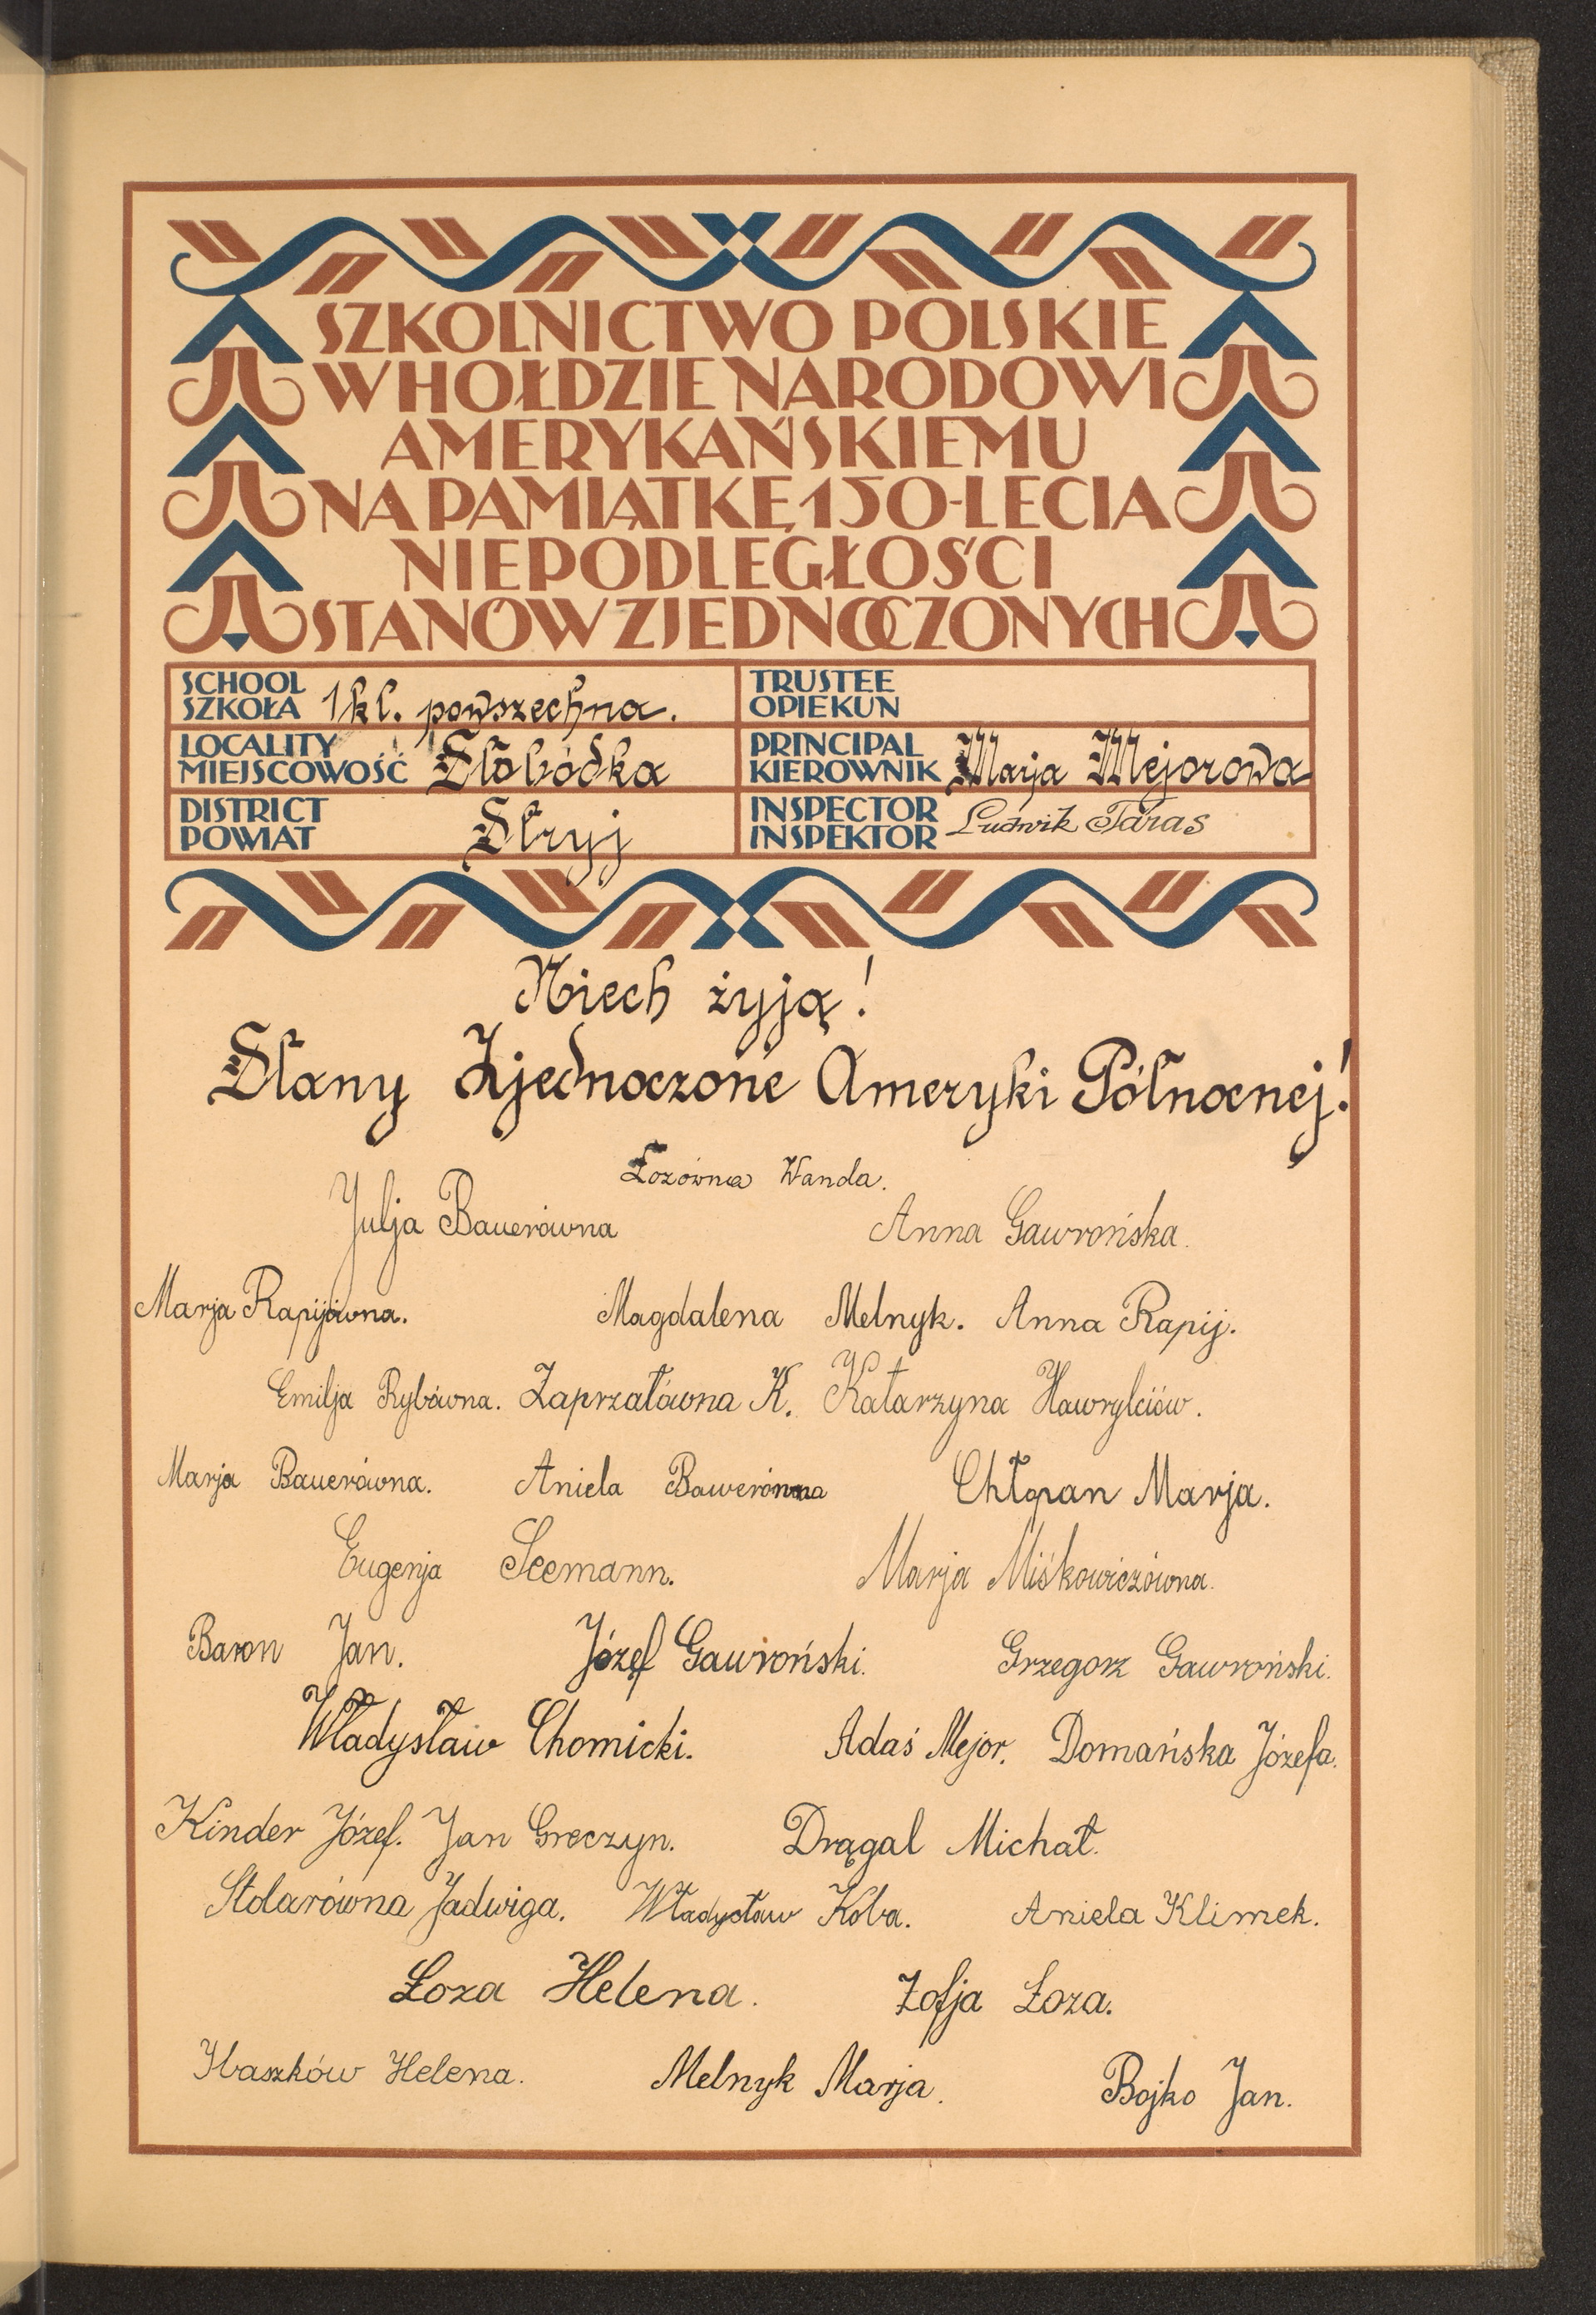 SZKOLNICTWO POLSKIE
W HOŁDZIE NARODOWI
AMERYKAŃSKIEMU
NA PAMIĄTKĘ 150-LECIA
NIEPODLEGŁOŚCI
STANÓW ZJEDNOCZONYCH
SCHOOL
SZKOŁA 1 kl. powszechna.
TRUSTEE
OPIEKUN
LOCALITY
MIEJSCOWOŚĆ Słobódka
PRINCIPAL
KIEROWNIK Marja Mejorowa
DISTRICT
POWIAT Stryj
INSPECTOR
INSPEKTOR Ludwik Taras
Niech żyją!
Stany Zjednoczone Ameryki Północnej!
Łozówna Wanda.
Julja Bauerówna Anna Gawrońska.
Marja Rapijówna. Magdalena Melnyk. Anna Rapij.
Emilja Rybówna. Zaprzałówna K. Katarzyna Hawrylciów.
Marja Bauerówna. Aniela Bawerówna Chłopan Marja.
Eugenja Seemann. Marja Miśkowiczówna.
Baron Jan. Józef Gawroński. Grzegorz Gawroński.
Władysław Chomicki. Adaś Mejor. Domańska Józefa.
Kinder Józef. Jan Greczyn. Drągal Michał.
Stolarówna Jadwiga. Władysław Koba. Aniela Klimek.
Łoza Helena. Zofja Łoza.
Iwaszków Helena. Melnyk Marja. Bojko Jan.